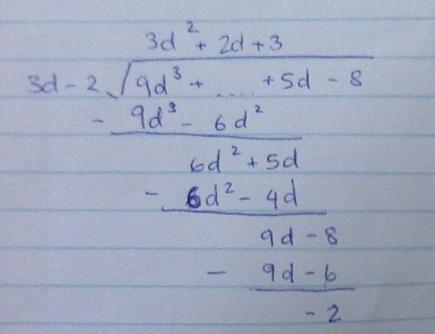 3d² + 2d + 3
3d - 2 √ 9d³ + .... + 5d - 8
- 9d³ - 6d²
6d² + 5d
- 6d² - 4d
9d - 8
- 9d - 6
- 2